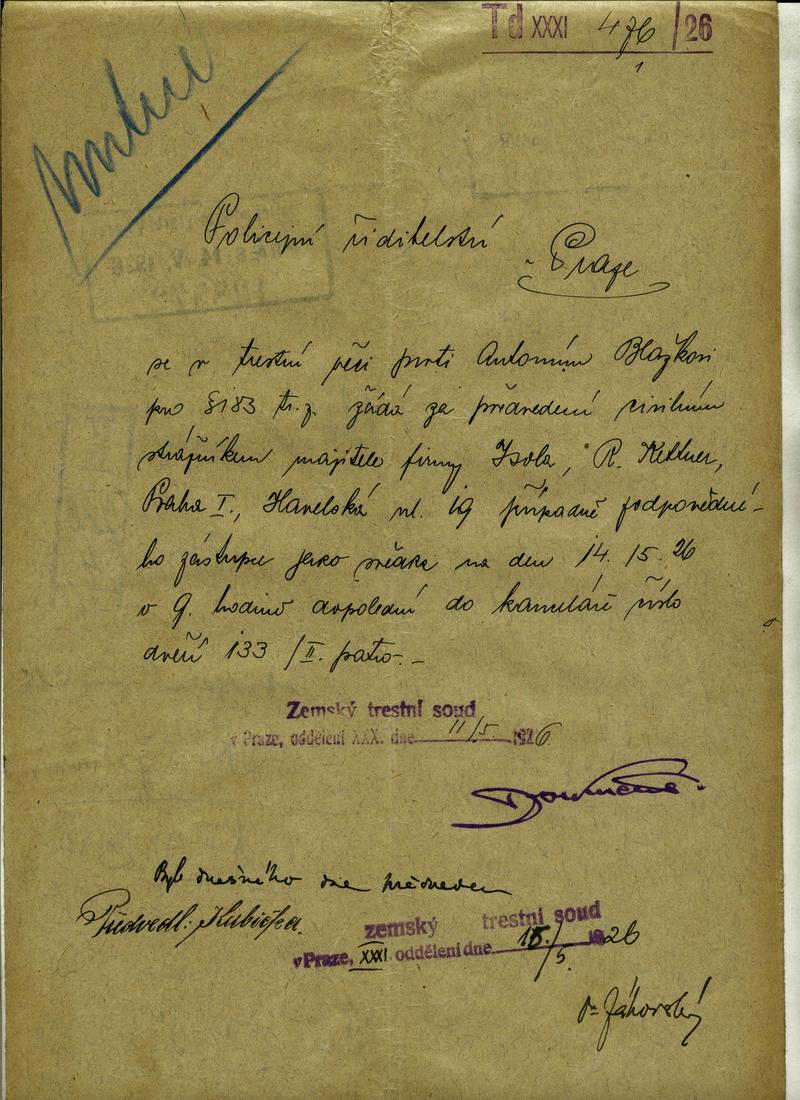 Td XXXI 476/26
1
nutné
Policejní řiditelství
v Praze
se v trestní věci proti Antonínu Blažkovi
pro §183 tr.z. žádá za předvedení civilním
strážníkem majitele firmy Isola, R. Kettner,
Praha I., Havelská ul. 19 případně zodpovědné-
ho zástupce jako svědka na den 14. /5. 26
v 9. hodinu dopolední do kanceláře číslo
dveří 133 /II. patro. –
Zemský trestní soud
v Praze, oddělení XXX. dne 11/5. 1926
Byl dnešního dne předveden
Předvedl: Kubička.
zemský trestní soud
v Praze, XXXI. oddělení dne 15./5. 1926
Dr Záhorský